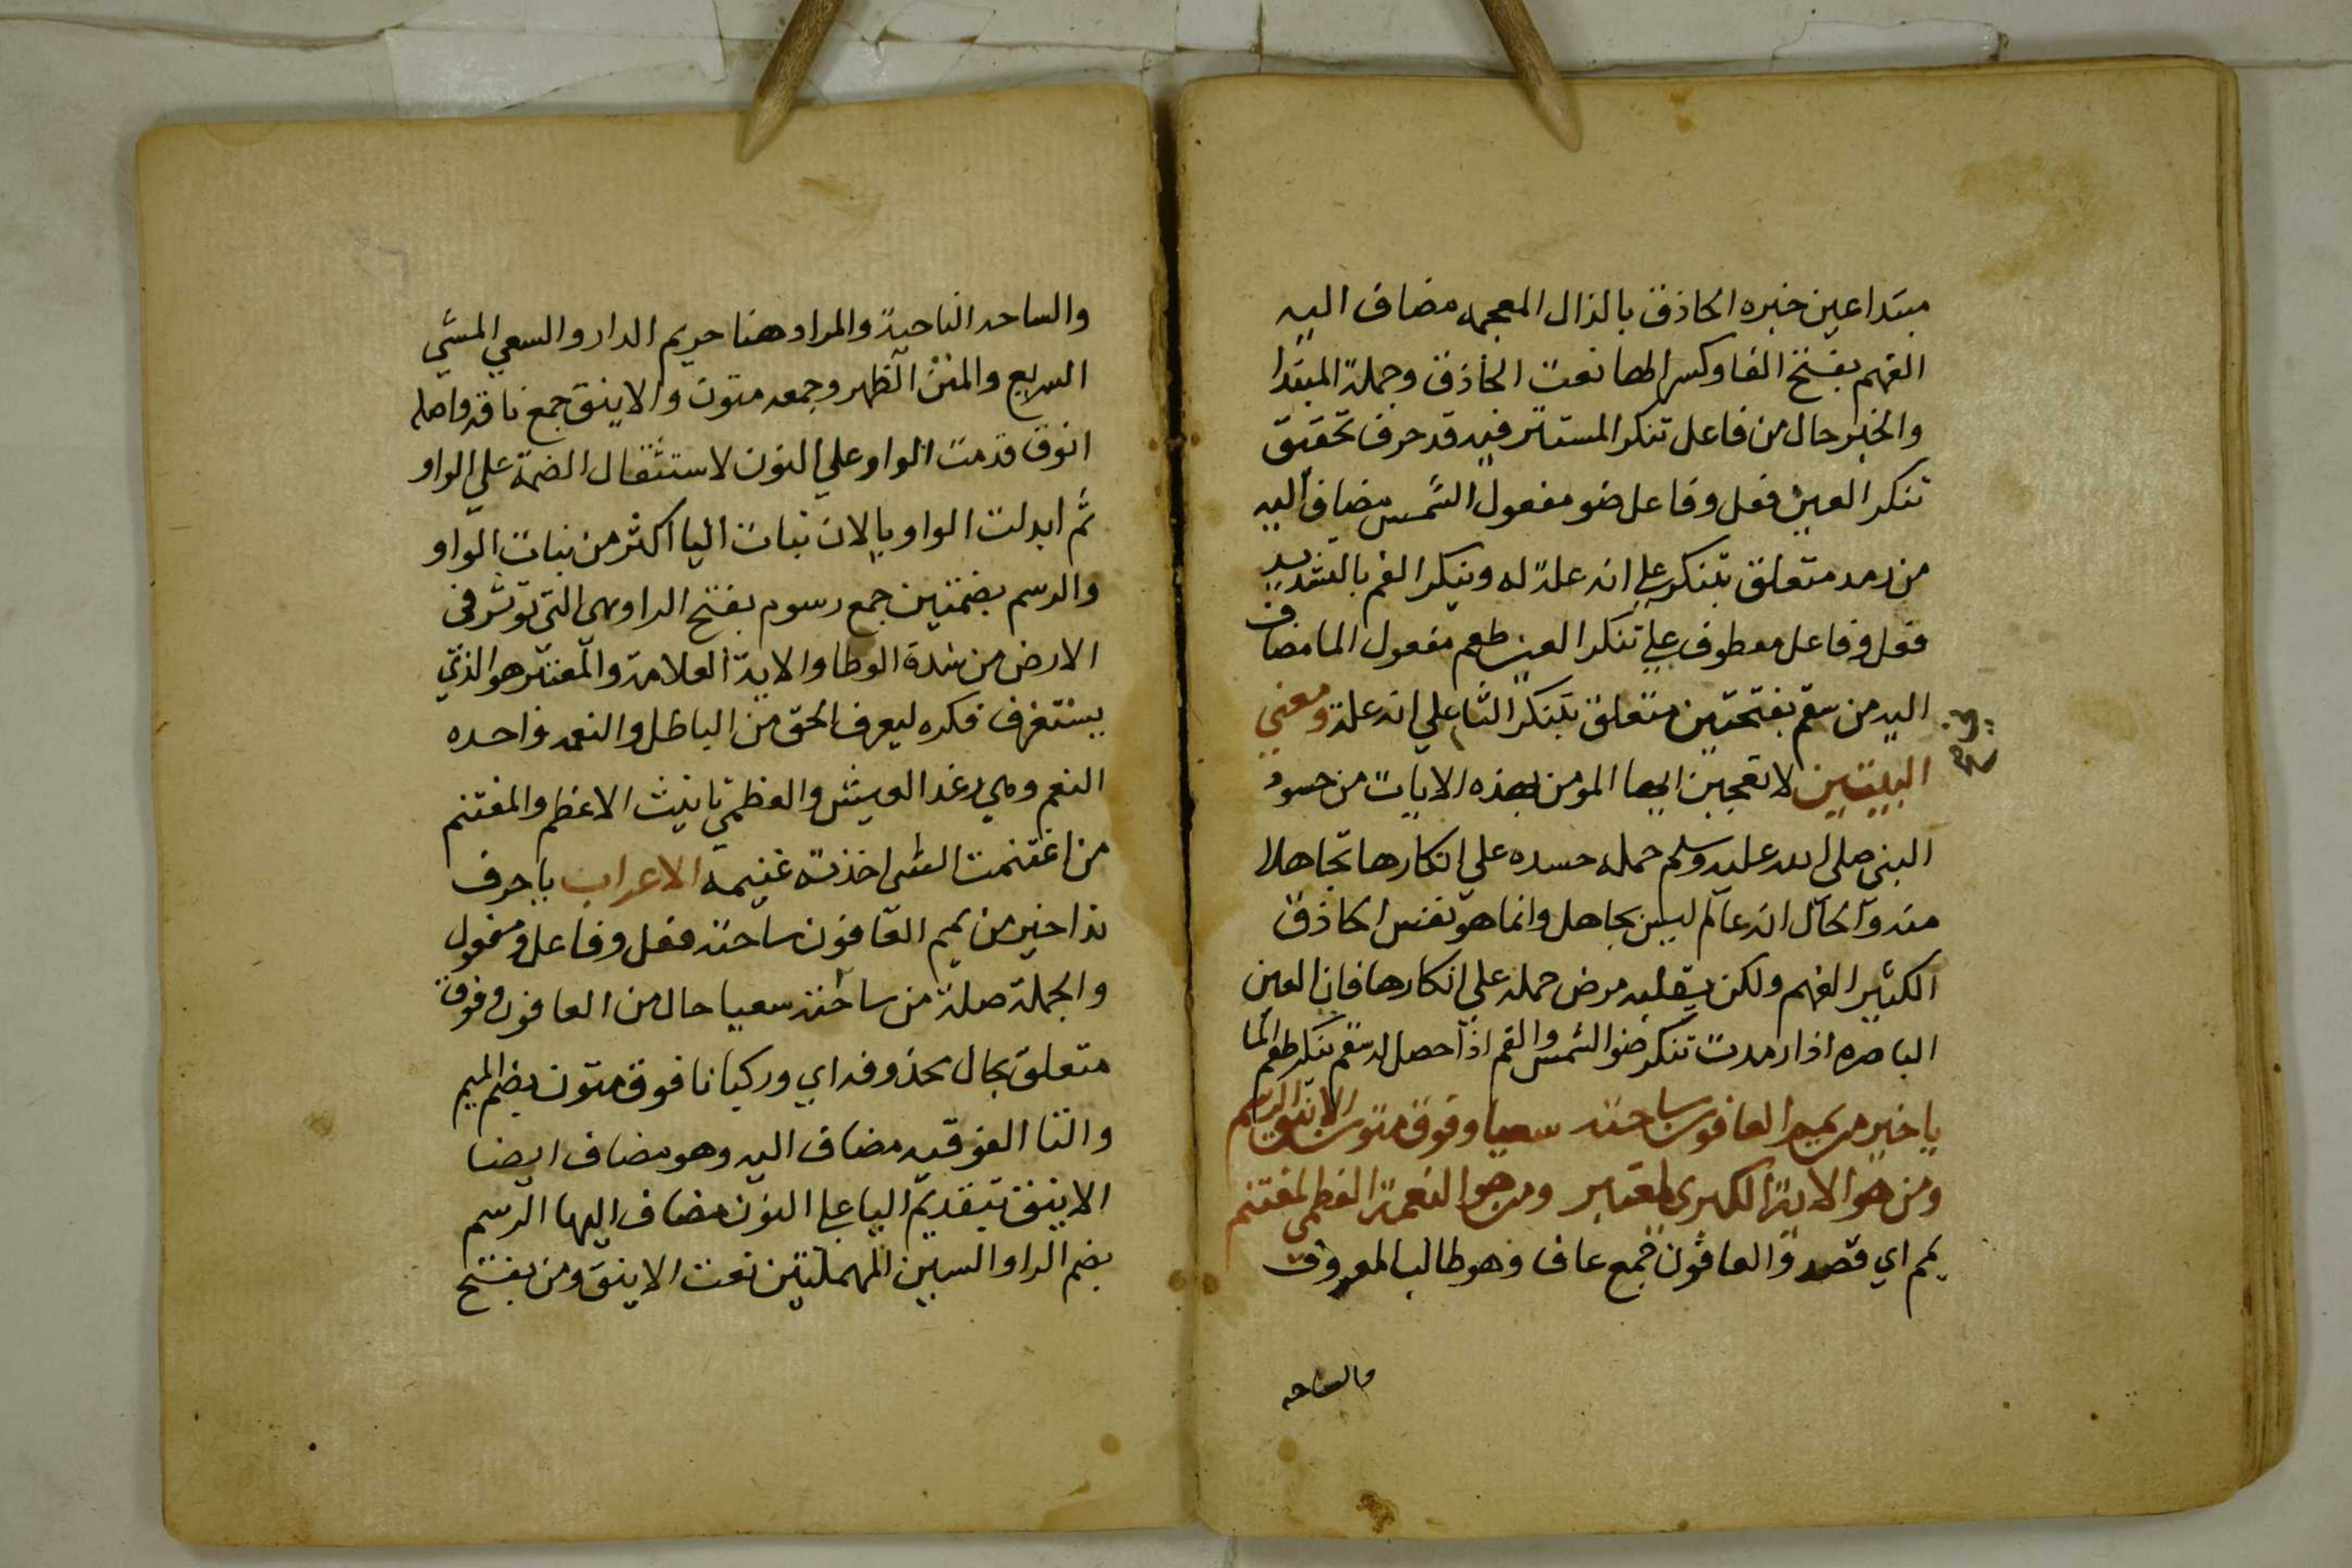 مبتدا عين خبره الحاذق بالذال المعجمه مضاف اليه
الفهم بفتح الفا وكسر الها نعت الحاذق وجملة المبتدا
والخبر حال من فاعل تنكر المستتر فيه قد حرف تحقيق
تنكر العين فعل وفاعل ضو مفعول الشمس مضاف اليه
من رمد متعلق بتنكر علي انه علة له وينكر الفم بالتشديد
فعل وفاعل معطوف علي تنكر العين طعم مفعول الما مضاف
اليه من سقم بفتحتين متعلق بتنكر الثا علي انه علة ومعني
البيتين لا تعجبن ايها المومن بهذه الايات من حسود
النبي صلى الله عليه وسلم حمله حسده علي انكارها تجاهلا
منه والحال انه عالم ليس بجاهل وانما هو نفس الحاذق
الكثير الفهم ولكن بقلبه مرض حمله علي انكارها فان العين
الباصره اذا رمدت تنكر ضو الشمس والفم اذا حصل له سقم ينكر طعم الما
يا خير من يمم العافون ساحته سعيا وفوق متون الاينق الرسم
ومن هو الاية الكبرى لمعتبر ومن هو النعمة العظمي لمغتنم
يمم اي قصد والعافون جمع عاف وهو طالب المعروف
والساحه
والساحه الناحية والمراد هنا حريم الدار والسعي المشي
السريع والمتن الظهر وجمعه متون والاينق جمع ناقه واصله
انوق قدمت الواو علي النون لاستثقال الضمة علي الواو
ثم ابدلت الواو يا لان بنات اليا اكثر من بنات الواو
والرسم بضمتين جمع رسوم بفتح الرا وهي التي توثر في
الارض من شدة الوطا والاية العلامة والمعتبر هو الذي
يستغرف فكره ليعرف الحق من الباطل والنعمه واحده
النعم وهي رغد العيش والعظمي تانيث الاعظم والمغتنم
من اغتنمت الشي اخذته غنيمه الاعراب يا حرف
ندا خير من يمم العافون ساحته فعل وفاعل ومفعول
والجملة صلة من ساحته سعيا حال من العافون وفوق
متعلق بحال محذوفه اي وركبانا فوق متون بضم الميم
والتا الفوقيه مضاف اليه وهو مضاف ايضا
الاينق بتقديم اليا علي النون مضاف اليها الرسم
بضم الرا والسين المهملتين نعت الاينق ومن بفتح